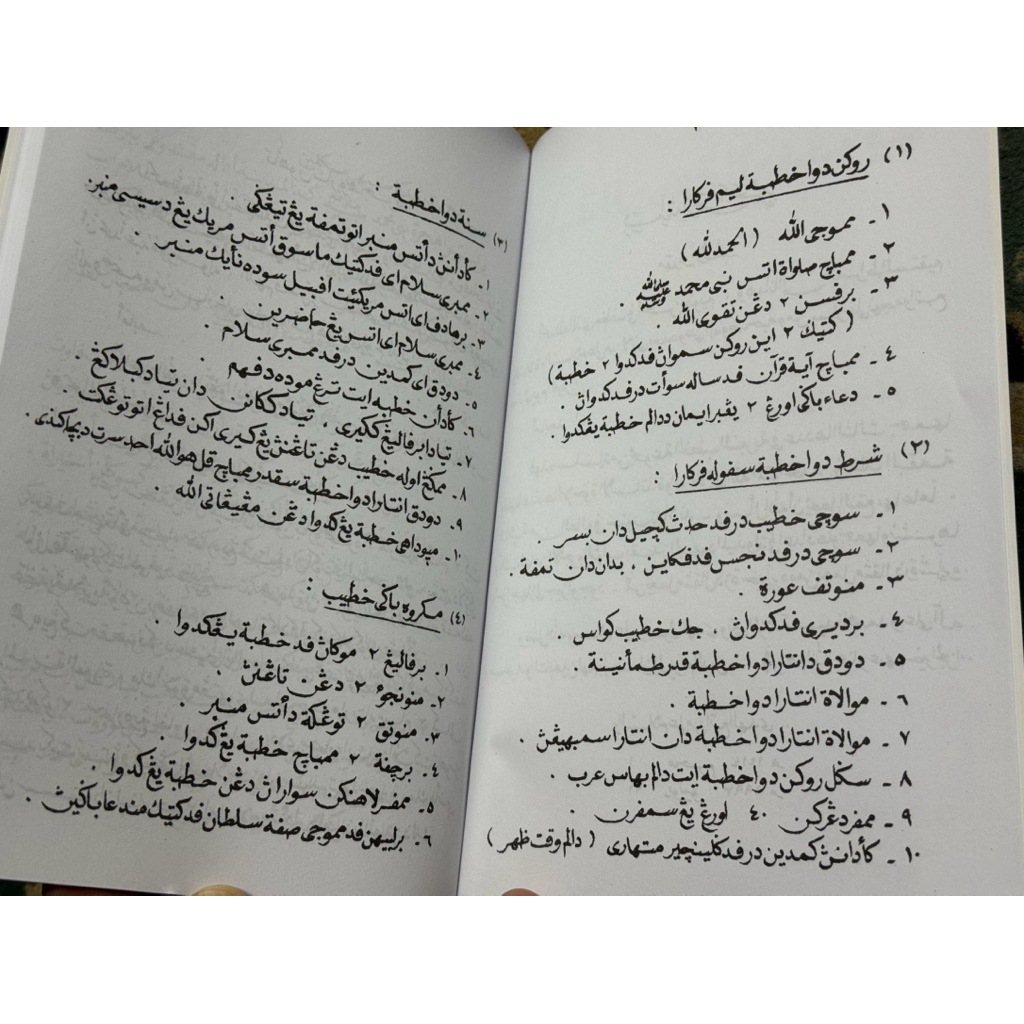 (١) روكن دوا خطبة ليم فركارا :
١ - مموجي الله ( الحمد لله )
٢ - ممباچ صلواة اتس نبي محمد ﷺ .
٣ - برفسن ٢ دغن تقوى الله .
( كتيݢ ٢ اين روكن سموان فد كدوا ٢ خطبة )
٤ - ممباچ آية قرآن فد ساله سوأت درفد كدوان .
٥ - دعاء باݢي اورڠ ٢ يڠبرايمان ددالم خطبة يڠكدوا .
(٢) شرط دوا خطبة سفوله فركارا :
١ - سوچي خطيب درفد حدث كچيل دان بسر .
٢ - سوچي درفد نجس فد فكاين ، بدان دان تمفة .
٣ - منوتف عورة .
٤ - برديري فد كدوان . جك خطيب كواس .
٥ - دودق دانتارا دوا خطبة قدر طمأنينة .
٦ - موالاة انتارا دوا خطبة .
٧ - موالاة انتارا دوا خطبة دان انتارا سمبهيڠن .
٨ - سݢل روكن دوا خطبة ايت دالم بهاس عرب .
٩ - ممفردڠركن ٤٠ اورڠ يڠ سمفرن .
١٠ - كأدانڽ كمدين درفد ݢلينچير متهاري ( دالم وقت ظهر )
(٣) سنة دوا خطبة :
١ - كأدانڽ دأتس منبر اتو تمفة يڠ تيڠݢي .
٢ - ممبري سلام اي فد كتيك ماسوق أتس مريك يڠ د سيسي منبر .
٣ - برهادف اي اتس مريكئيت افبيل سوده نايك منبر .
٤ - ممبري سلام اي اتس يڠ حاضرين .
٥ - دودق اي كمدين درفد ممبري سلام .
٦ - كأدأن خطبة ايت ترڠ موده دفهم .
٧ - تيادا برفاليڠ ككيري ، تياد ككانن دان تياد كبلاكڠ .
٨ - ممݢڠ اوله خطيب دڠن تاڠنڽ يڠ كيري اكن فداڠ اتو توڠكت .
٩ - دودق انتارا دوا خطبة سقدر ممباچ قل هو الله احد سرت دباچاكندي .
١٠ - ميوداهي خطبة يڠ كدوا دڠن مڠيڠاتي الله .
(٤) مكروه باݢي خطيب :
١ - برفاليڠ ٢ موكاڽ فد خطبة يڠكدوا .
٢ - منونجوء ٢ دڠن تاڠنڽ .
٣ - منوتق ٢ توڠكة دأتس منبر .
٤ - برچفة ٢ ممباچ خطبة يڠ كدوا .
٥ - ممفرلاهنكن سواراڽ دڠن خطبة يڠ كدوا .
٦ - برلبيهن فد مموجي صفة سلطان فد كتيك مندعا باݢيڽ .